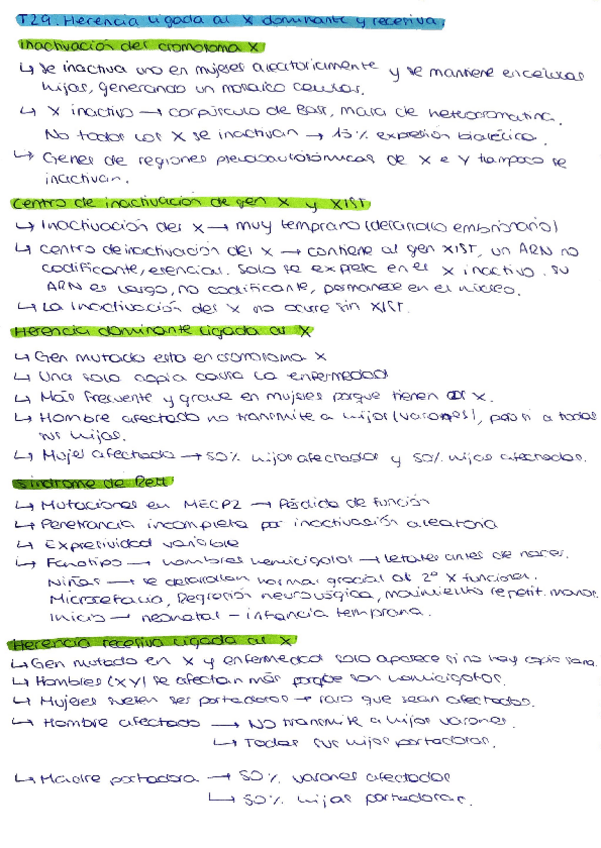 T29. Herencia ligada al X dominante y recesiva.
Inactivación del cromosoma X
↳ Se inactiva uno en mujeres aleatoriamente y se mantiene en células
hijas, generando un mosaico celular.
↳ X inactivo → corpúsculo de Barr, masa de heterocromatina.
No todos los X se inactivan → 15% expresión bialélica.
↳ Genes de regiones pseudoautosómicas de X e Y tampoco se
inactivan.
Centro de inactivación de gen X y XIST
↳ Inactivación del X → muy temprano (desarrollo embrionario)
↳ Centro de inactivación del X → contiene al gen XIST, un ARN no
codificante, esencial. Solo se expresa en el X inactivo. Su
ARN es largo, no codificante, permanece en el núcleo.
↳ La inactivación del X no ocurre sin XIST.
Herencia dominante ligada al X
↳ Gen mutado esta en cromosoma X
↳ Una sola copia causa la enfermedad
↳ Más frecuente y grave en mujeres porque tienen X.
↳ Hombre afectado no transmite a hijos (varones), pero si a todas
sus hijas.
↳ Mujer afectada → 50% hijos afectados y 50% hijas afectadas.
Síndrome de Rett
↳ Mutaciones en MECP2 → Pérdida de función
↳ Penetrancia incompleta por inactivación aleatoria
↳ Expresividad variable
↳ Fenotipo → hombres hemicigotos → letales antes de nacer.
Niñas → se desarrollan normal gracias al 2º X funcional.
Microcefalia, Regresión neurológica, movimiento repetit. manos.
Inicio → neonatal - infancia temprana.
Herencia recesiva ligada al X
↳ Gen mutado en X y enfermedad solo aparece si no hay copia sana.
↳ Hombres (XY) se afectan más porque son hemicigotos.
↳ Mujeres suelen ser portadoras → raro que sean afectadas.
↳ Hombre afectado → No transmite a hijos varones.
↳ Todas sus hijas portadoras.
↳ Madre portadora → 50% varones afectados
↳ 50% hijas portadoras.